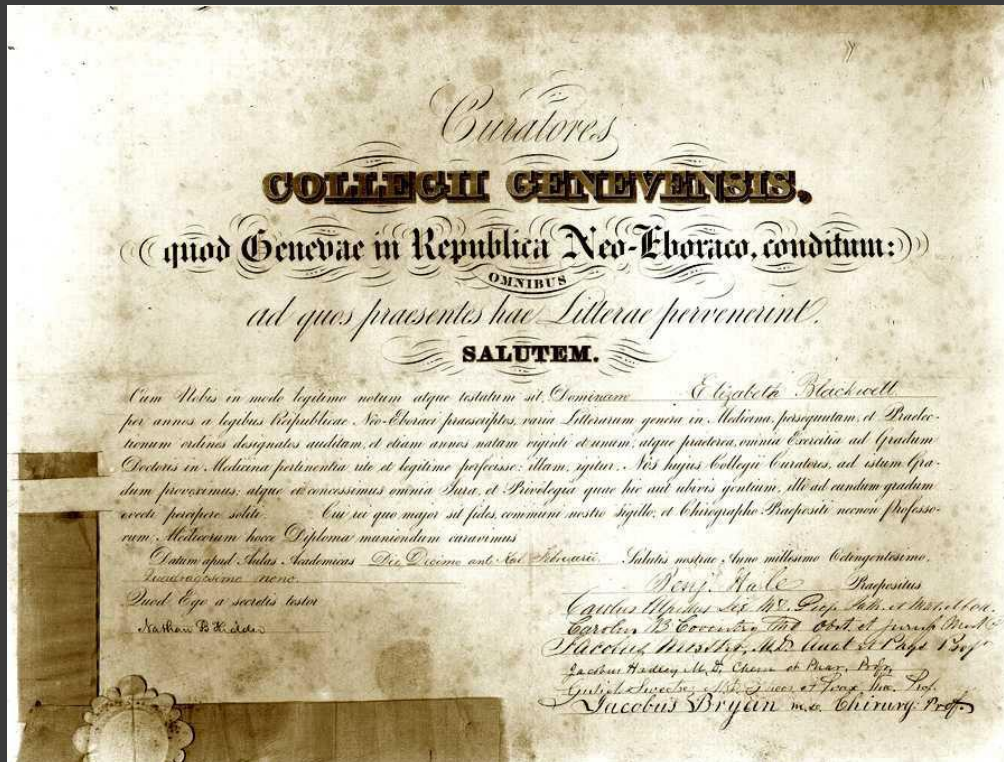 Curatores
COLLEGII GENEVENSIS,
quod Genevae in Republica Neo-Eboraco, conditum:
OMNIBUS
ad quos praesentes hae Litterae pervenerint,
SALUTEM.
Cum Nobis in modo legitimo notum atque testatum sit, Dominam Elizabeth Blackwell
per annos a legibus Reipublicae Neo-Eboraci praescriptos, varia Litterarum genera in Medicina, persequutam, et Praelec-
tionum ordines designatos auditam, et etiam annos natam viginti et unum, atque praeterea, omnia Exercitia ad Gradum
Doctoris in Medicina pertinentia rite et legitimo perfecisse; illam, igitur, Nos hujus Collegii Curatores, ad istum Gra-
dum proveximus, atque ei concessimus omnia Jura, et Privilegia quae hic aut ubivis gentium, ille ad eundum gradum
evecti percipere soliti. Cui rei quo major sit fides, communi nostro Sigillo, et Chirographo Praepositi necnon Professo-
rum Medicorum hocce Diploma muniendum curavimus
Datum apud Aulas Academicas Die Decimo ant Kal Februarii Salutis nostrae Anno millesimo Octingentesimo.
Quadragesimo nono.
Benj. Hale Praepositus
Quod Ego a secretis testor
Nathan B Kidder
Carolus Lee M.D. Prof. Path. et Mat. Med.
Carolus B Coventry M.D. Obst. et Jurisp. Med.
Jacobus Webster, M.D. Anat. et Phys Prof
Jacobus Hadley M.D. Chem. et Phar. Prof.
Prof.
Jacobus Bryan M.D. Chirurg. Prof.